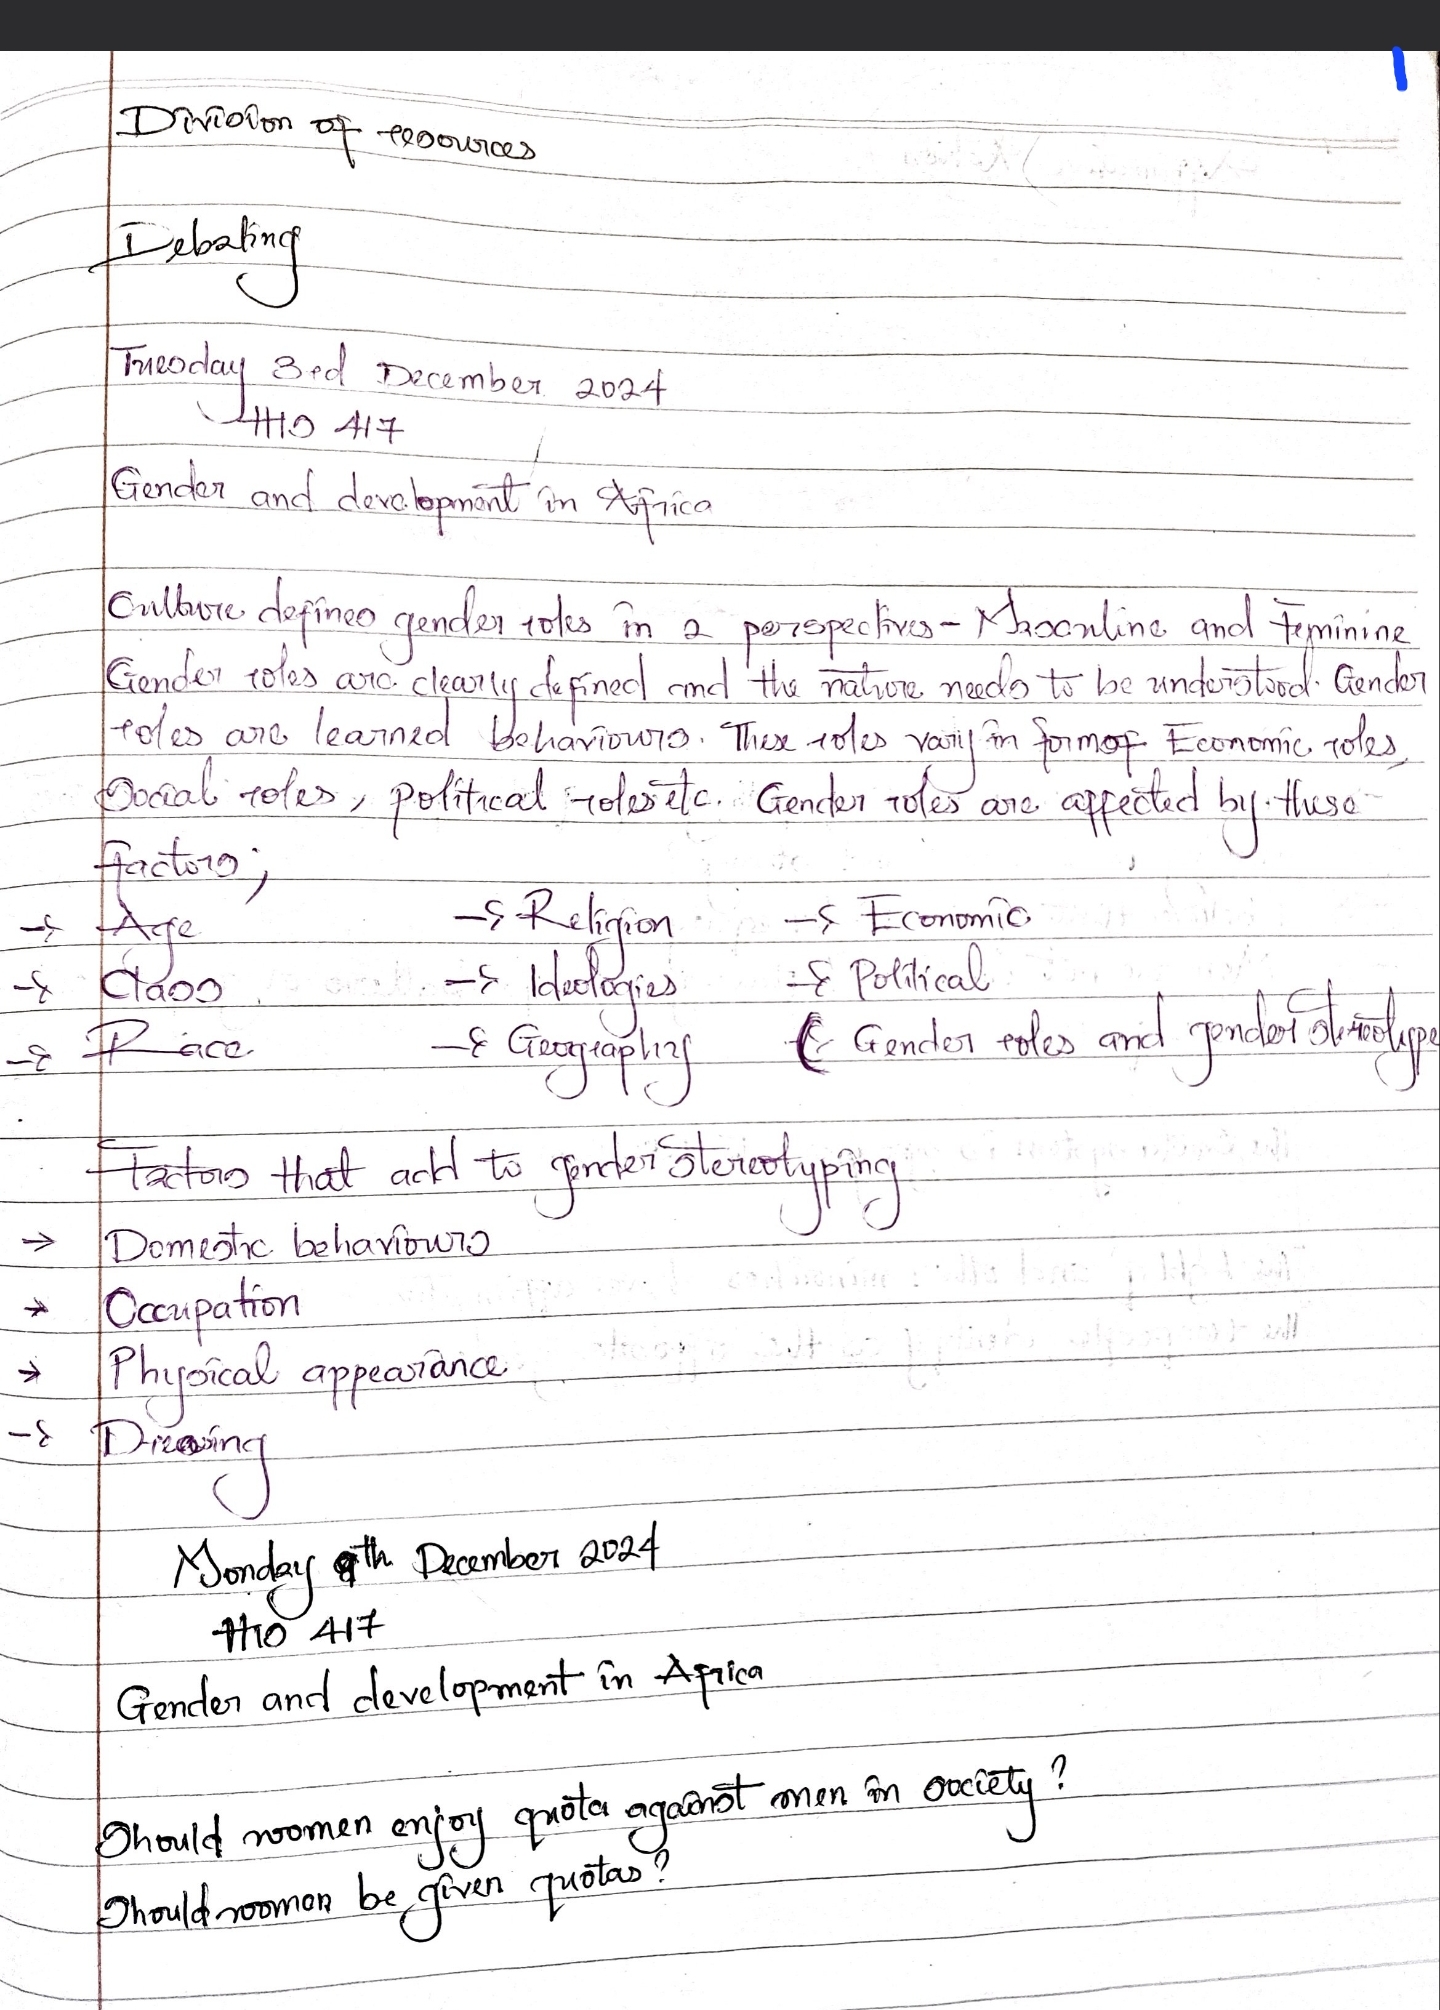 Division of resources
Debating
Tuesday 3rd December 2024
HIS 417
Gender and development in Africa
Culture defines gender roles in 2 perspectives - Masculine and Feminine
Gender roles are clearly defined and the nature needs to be understood. Gender
roles are learned behaviours. These roles vary in form of Economic roles,
Social roles, political roles etc. Gender roles are affected by these
factors;
→ Age → Religion → Economic
→ Class → Ideologies → Political
→ Race → Geography Gender roles and gender stereotype
Factors that add to gender stereotyping
→ Domestic behaviours
→ Occupation
→ Physical appearance
→ Dressing
Monday 9th December 2024
HIS 417
Gender and development in Africa
Should women enjoy quota against men in society?
Should women be given quotas?